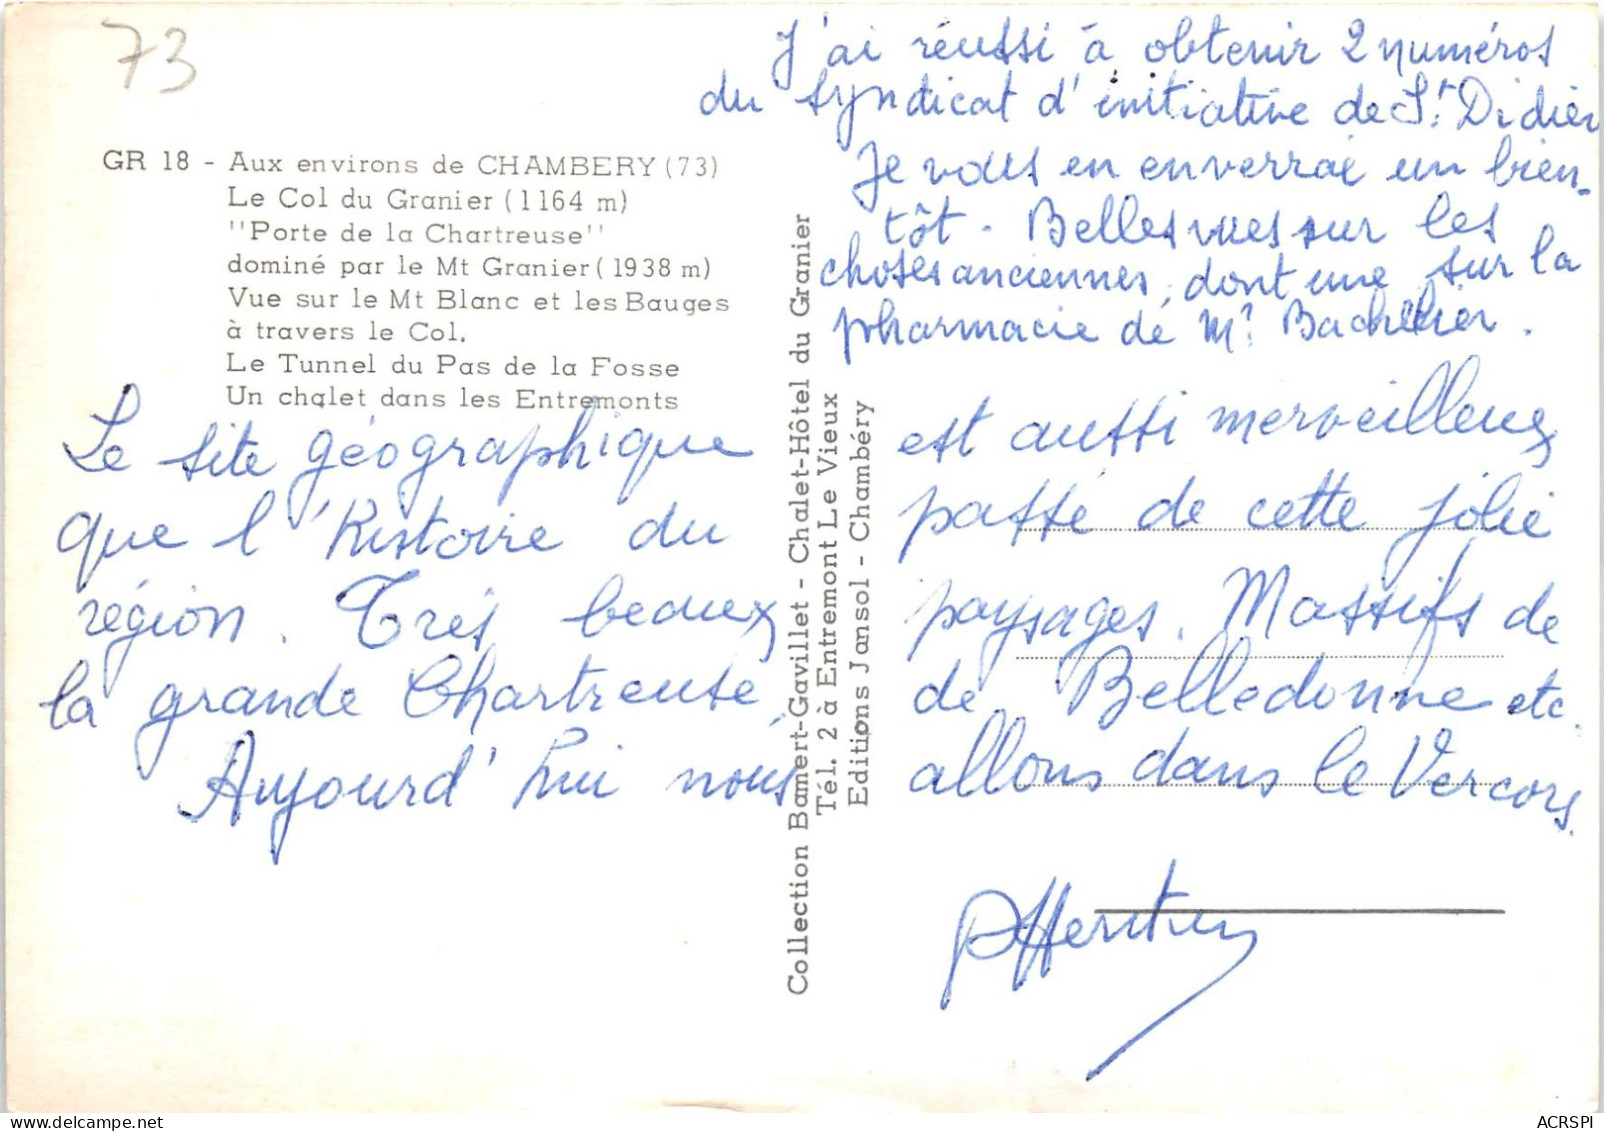 73
GR 18 - Aux environs de CHAMBERY (73)
Le Col du Granier (1164 m)
"Porte de la Chartreuse"
dominé par le Mt Granier (1938 m)
Vue sur le Mt Blanc et les Bauges
à travers le Col.
Le Tunnel du Pas de la Fosse
Un chalet dans les Entremonts
J'ai réussi à obtenir 2 numéros
du syndicat d'initiative de St. Didier
Je vous en enverrai un bien-
tôt. Belles vues sur les
choses anciennes, dont une sur la
pharmacie de Mr. Bachelier.
Le site géographique
que l'histoire du
région. Très beaux
la grande Chartreuse,
Aujourd'hui nous
est aussi merveilleux
passé de cette jolie
paysages. Massifs de
de Belledonne etc.
allons dans le Vercors.
Collection Bamert-Gavillet - Chalet-Hôtel du Granier
Tél. 2 à Entremont Le Vieux
Editions Jansol - Chambéry
ACRSPI